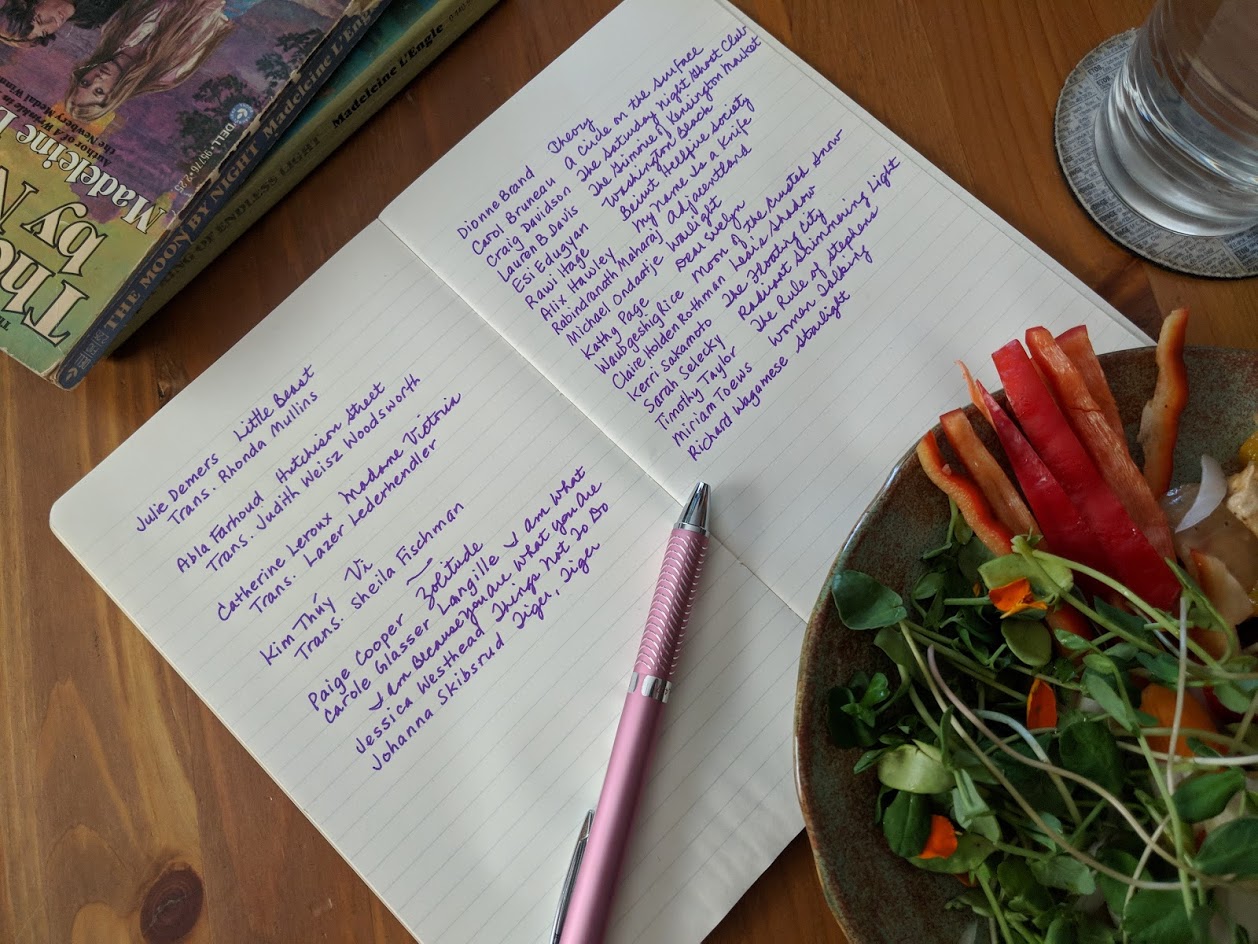 Julie Demers Little Beast
Trans. Rhonda Mullins
Abla Farhoud Hutchison Street
Trans. Judith Weisz Woodsworth
Catherine Leroux Madame Victoria
Trans. Lazer Lederhendler
Kim Thúy Vi
Trans. Sheila Fischman
Paige Cooper Zolitude
Carole Glasser Langille I am What
I am Because You are What you Are
Jessica Westhead Things Not To Do
Johanna Skibsrud Tiger, Tiger
Dionne Brand Theory
Carol Bruneau A Circle on the Surface
Craig Davidson The Saturday Night Ghost Club
Lauren B. Davis The Grimoire of Kensington Market
Esi Edugyan Washington Black
Rawi Hage Beirut Hellfire Society
Alix Hawley My Name Is a Knife
Rabindranath Maharaj Adjacentland
Michael Ondaatje Warlight
Kathy Page Dear Evelyn
Waubgeshig Rice Moon of the Crusted Snow
Claire Holden Rothman Lear's Shadow
Kerri Sakamoto The Floating City
Sarah Selecky Radiant Shimmering Light
Timothy Taylor The Rule of Stephens
Miriam Toews Women Talking
Richard Wagamese Starlight
THE MOON BY NIGHT Madeleine L'Eng
RING OF ENDLESS LIGHT Madeleine L'Engle
Author of A Wrinkle in
the Newbery Medal Winne
Madeleine L
The
by N
DELL